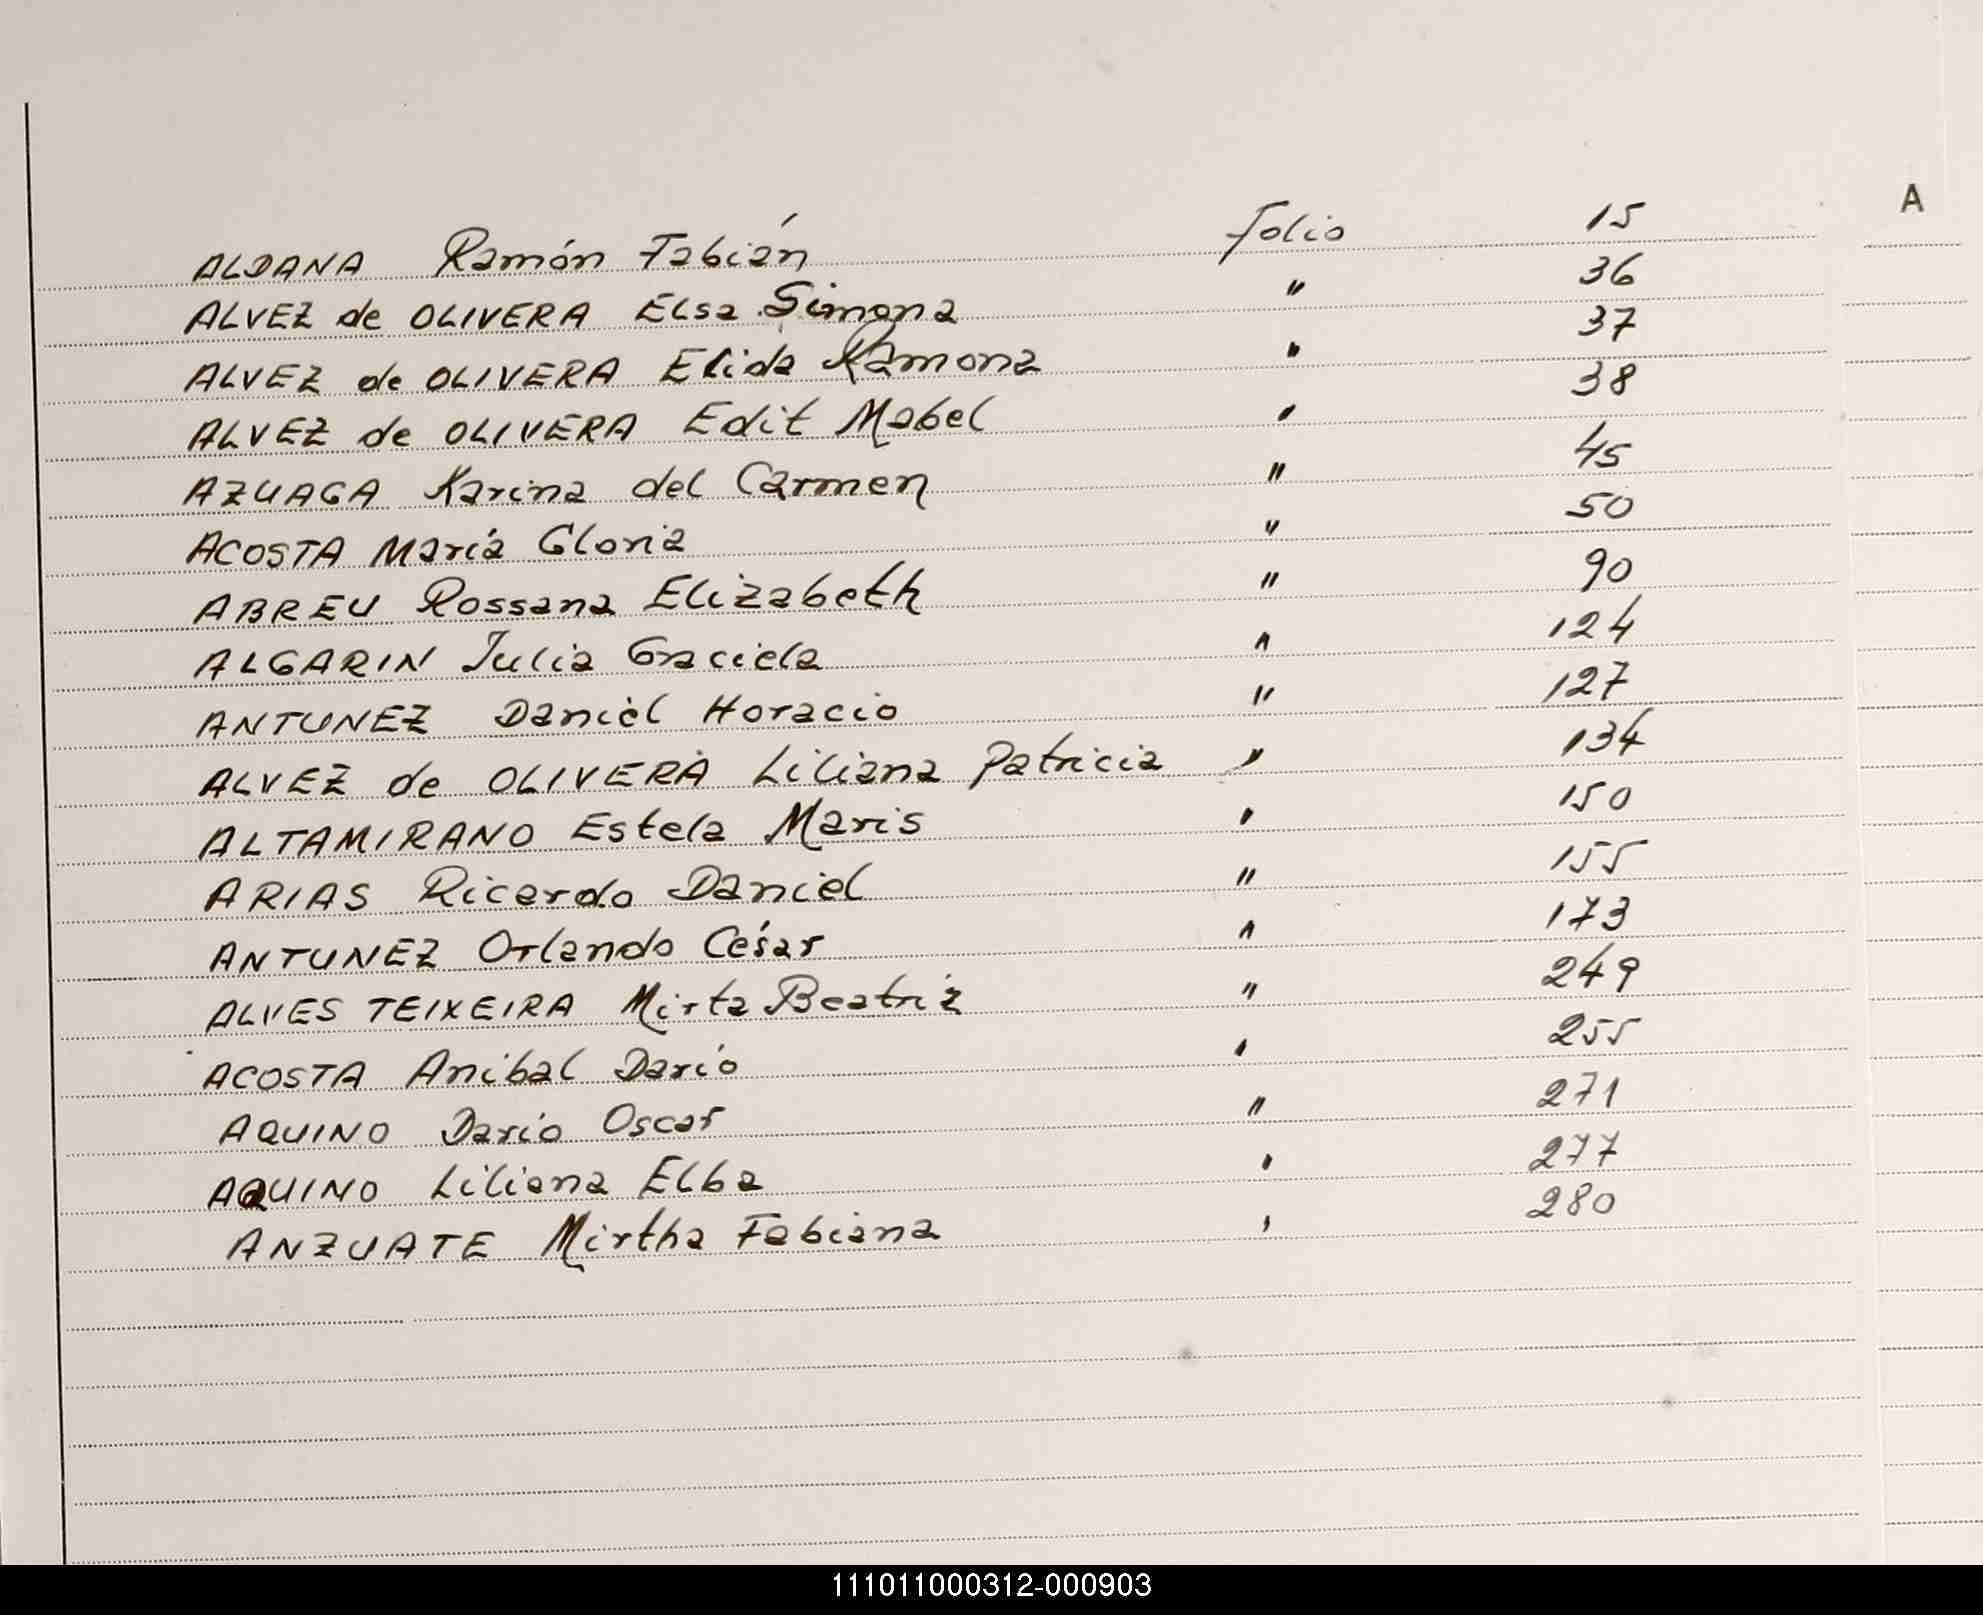 A
ALDANA Ramón Fabián Folio 15
ALVEZ de OLIVERA Elsa Simona " 36
ALVEZ de OLIVERA Elida Ramona " 37
ALVEZ de OLIVERA Edit Mabel " 38
AZUAGA Karina del Carmen " 45
ACOSTA María Gloria " 50
ABREU Rossana Elizabeth " 90
ALGARIN Julia Graciela " 124
ANTUNEZ Daniel Horacio " 127
ALVEZ de OLIVERA Liliana Patricia " 134
ALTAMIRANO Estela Maris " 150
ARIAS Ricardo Daniel " 155
ANTUNEZ Orlando César " 173
ALVES TEIXEIRA Mirta Beatriz " 249
ACOSTA Anibal Darío " 255
AQUINO Darío Oscar " 271
AQUINO Liliana Elba " 277
ANZUATE Mirtha Fabiana " 280
111011000312-000903